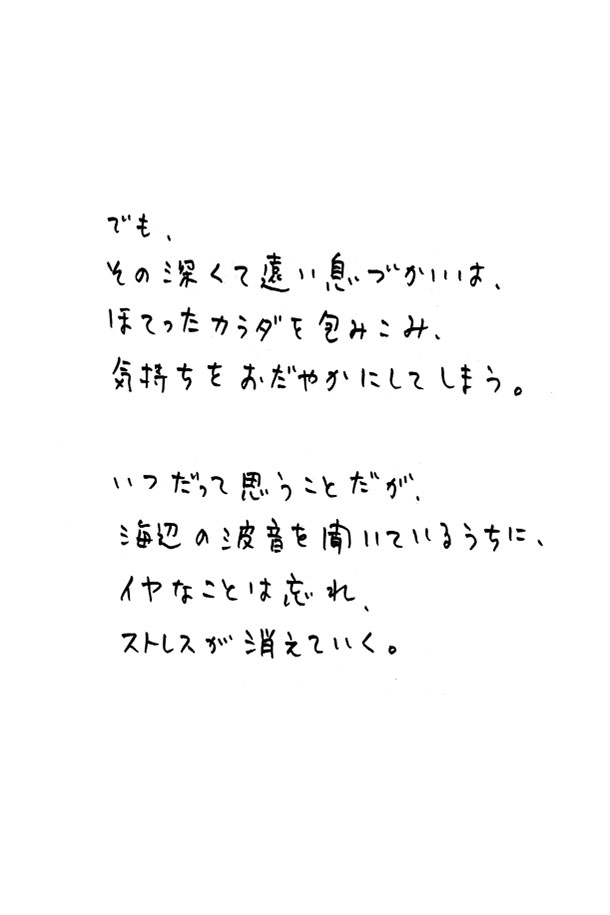 でも、
その深くて遠い息づかいは、
ほてったカラダを包みこみ、
気持ちをおだやかにしてしまう。
いつだって思うことだが、
海辺の波音を聞いているうちに、
イヤなことは忘れ、
ストレスが消えていく。